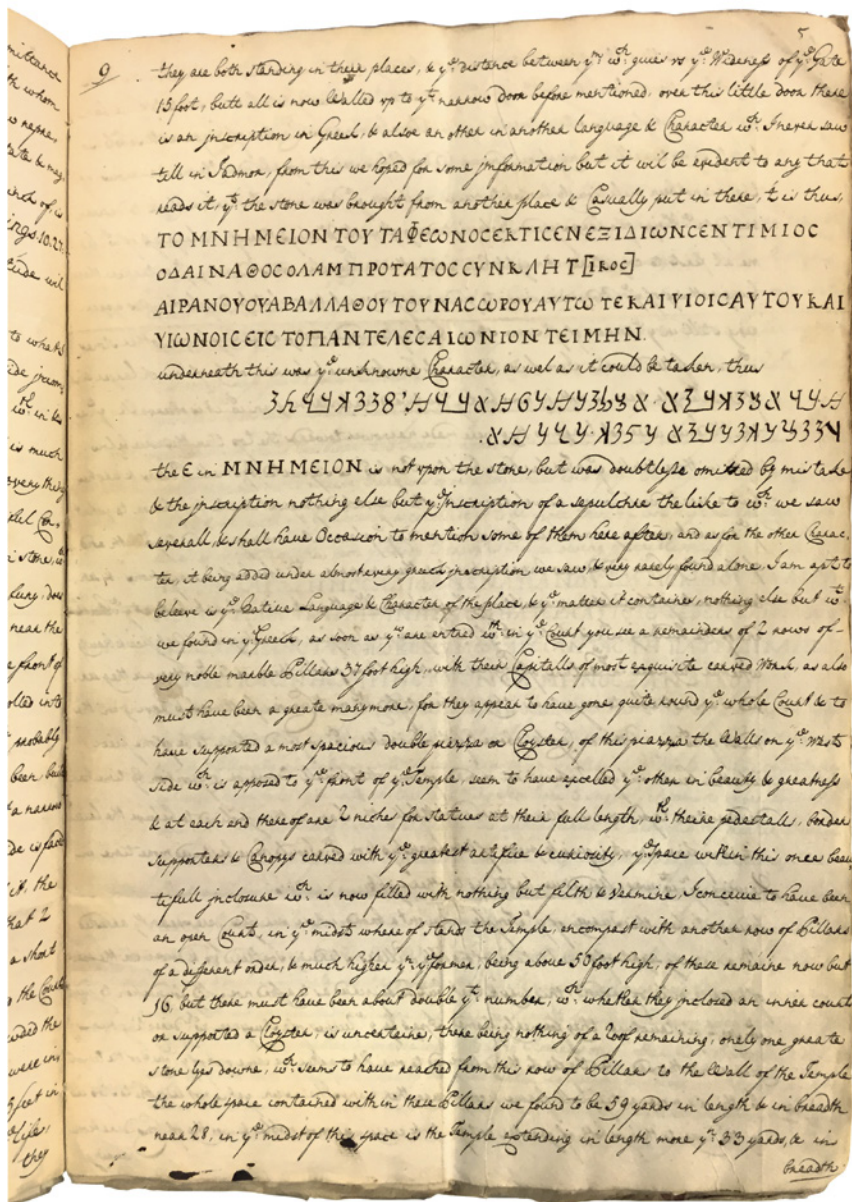 mittance
th whom
ings.10.27
wil
to what's
is much
every thing
near the
e front of
olled into
probably
a narrow
it. the
hat 2
a short
the Court
were in
feet in
they
5
9
they are both standing in their places, & yͤ distance between yᵐ wᶜʰ giues vs yͤ Wideness of yͤ Gate
15 foot, butt all is now Walled vp to yᵗ narrow Door before mentioned, over this little door there
is an jnscription in Greek, & alsoe an other in another language & Character wᶜʰ I never saw
tell in Tadmor, from this we hoped for some jmformation but it wil be evident to any that
reads it, yᵗ the stone was brought from another place & Casually put in there, t is thus,
ΤΟ ΜΝΗΜΕΙΟΝ ΤΟΥ ΤΑΦΕѠΝΟϹ ΕΚΤΙϹΕΝ ΕΞ ΙΔΙѠΝ ϹΕΝΤΙΜΙΟϹ
ΟΔΑΙΝΑΘΟϹ Ο ΛΑΜΠΡΟΤΑΤΟϹ ϹΥΝΚΛΗΤ[ΙΚΟϹ]
ΑΙΡΑΝΟΥ ΟΥΑΒΑΛΛΑΘΟΥ ΤΟΥ ΝΑϹϹѠΡΟΥ ΑΥΤѠ ΤΕ ΚΑΙ ΥΙΟΙϹ ΑΥΤΟΥ ΚΑΙ
ΥΙѠΝΟΙϹ ΕΙϹ ΤΟ ΠΑΝΤΕΛΕϹ ΑΙѠΝΙΟΝ ΤΕΙΜΗΝ.
underneath this was yͤ unknowne Character, as wel as it could be taken, thus
the Ε in ΜΝΗΜΕΙΟΝ is not vpon the stone, but was doubtlesse omitted by mistake
& the jnscription nothing else but yͤ Inscription of a sepulchre the like to wᶜʰ we saw
severall, & shall have Occasion to mention some of them here after, and as for the other Charac,
ter, it being added under almost every greek jnscription we saw, & very rarely found alone, I am apt to
beleeve is yͤ Native Language & Character of the place, & yͤ matter it containes, nothing else but wᵗ
we found in yͤ Greek, as soon as yᵘ are entred wᵗʰ in yͤ Court you see a remainders of 2 rows of -
very noble marble Pillars 37 foot high, with their Capitalls of most exquisite carved Work, as also
must have been a greate many more, for they appear to have gone quite round yͤ whole Court & to
have supported a most spacious double piazza or Cloyster, of this piazza the Walls on yͤ West
side wᶜʰ is apposed to yͤ front of yͤ Temple, seem to have excelled yͤ other in beauty & greatness
& at each end thereof are 2 niches for statues at their full length, wᵗʰ theire pedestalls, border
supporters & Canopys carved with yͤ greatest artefice & curiosity, yͤ space within this once beau
tefull jnclosure wᶜʰ is now filled with nothing but filth & Vermine, I conceive to have been
an oven Court, in yͤ midst where of stands the Temple, encompast with another row of Pillars
of a different order, & much higher yⁿ yͤ former, being above 50 foot high, of these remaine now but
16, but there must have been about double yᵗ number, wᶜʰ whether they jnclosed an inner court
or supported a Cloyster, is uncertaine, there being nothing of a roof remaining, onely one greate
stone lys downe, wᶜʰ seems to have reached from this row of Pillars to the Wall of the Temple
the whole space contained with in these Pillars we found to be 59 yards in length & in breadth
near 28, in yͤ midst of this space is the Temple extending in length more yⁿ 33 yards, & in
breadth